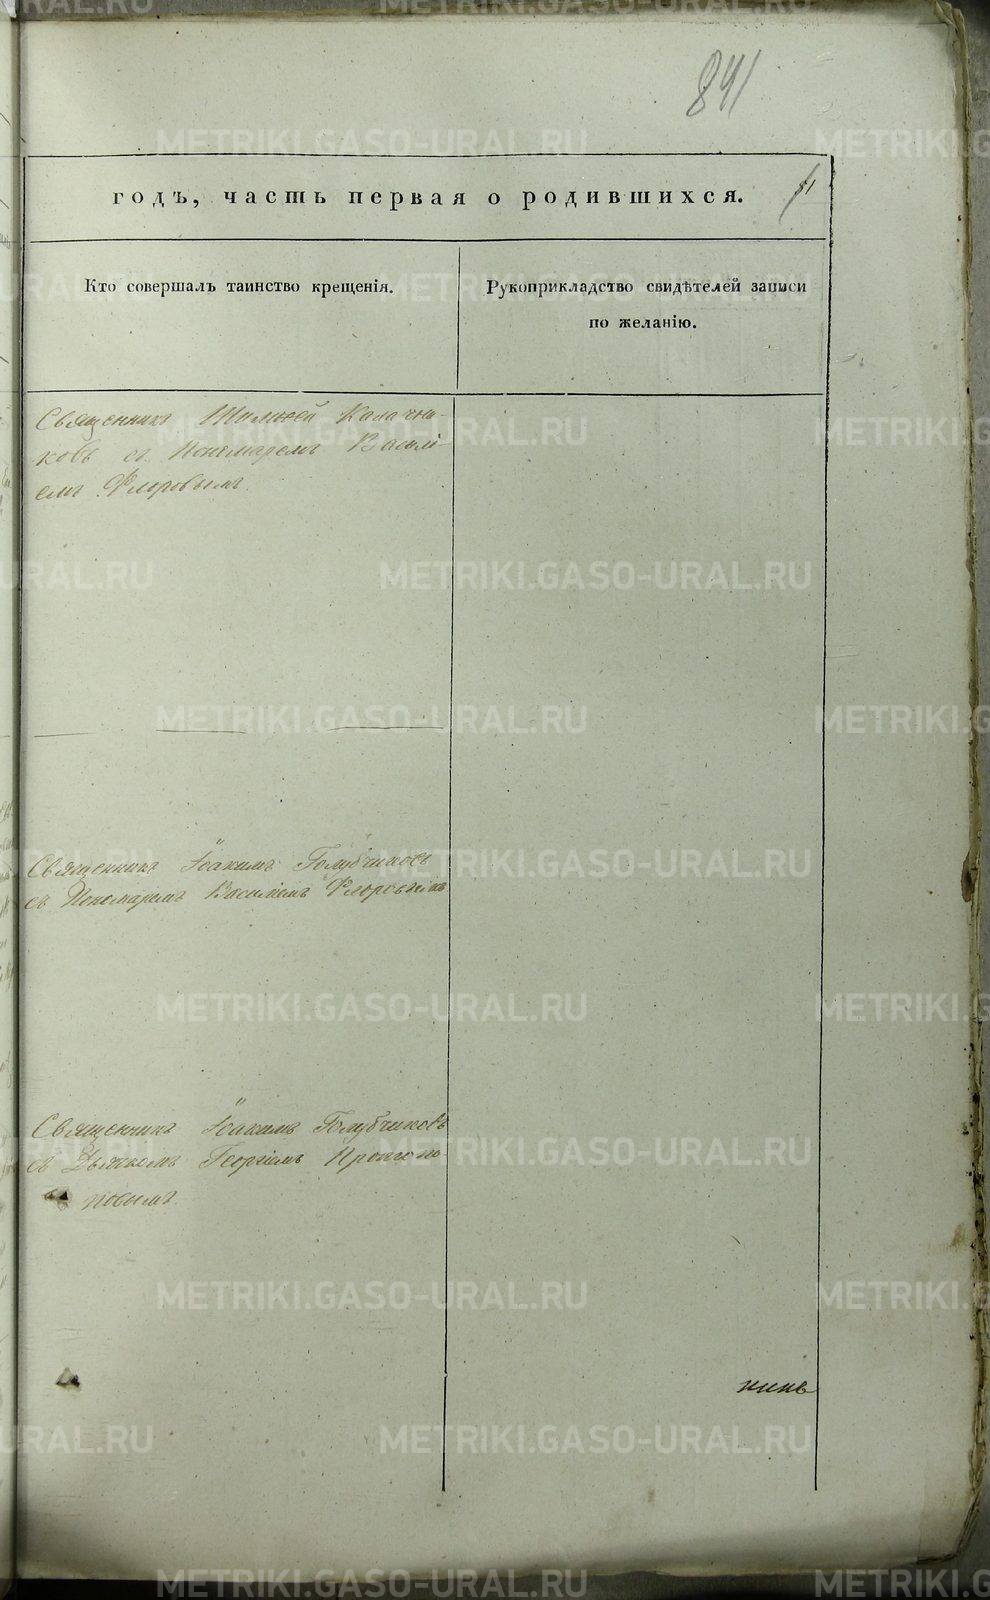 841
годъ, часть первая о родившихся.
Кто совершалъ таинство крещенія.
Рукоприкладство свидѣтелей записи
по желанію.
Священникъ Тимоѳей Калачни-
ковъ съ Пономаремъ Василі-
емъ Флоровымъ.
Священникъ Іоакимъ Голубчиковъ
съ Пономаремъ Василіемъ Флоровымъ
Священникъ Іоакимъ Голубчиковъ
съ Дьячкомъ Георгіемъ Протопо-
повымъ.
METRIKI.GASO-URAL.RU